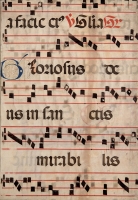 a facie er
Gloriosus de
us in san ctis
mirabi lis